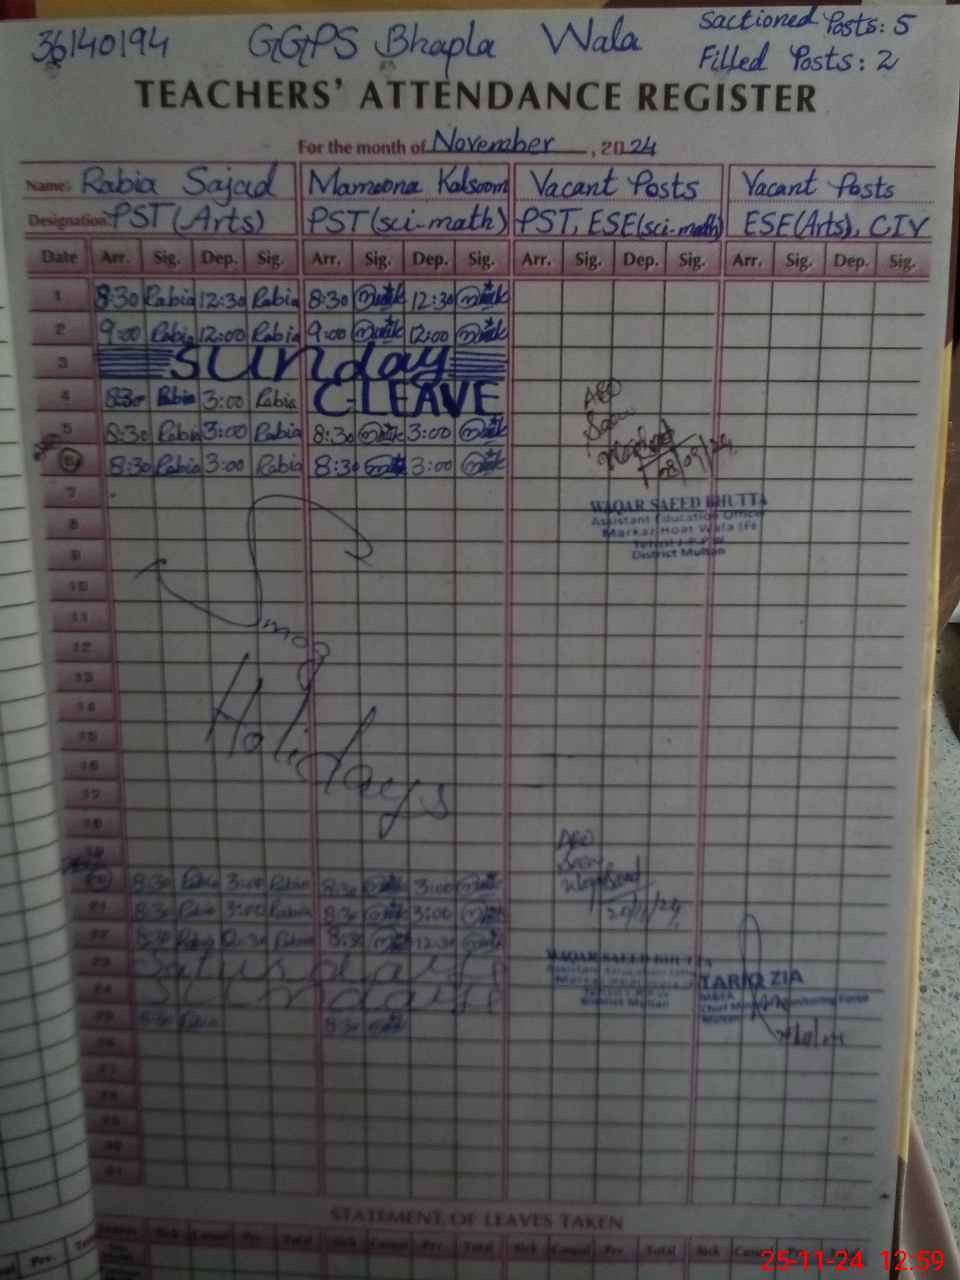 36140194 GGPS Bhapla Wala Sactioned Posts: 5
Filled Posts: 2
TEACHERS' ATTENDANCE REGISTER
For the month of November, 2024
Name: Rabia Sajad Mamoona Kalsoom Vacant Posts Vacant Posts
Designation PST (Arts) PST (sci-math) PST, ESE(sci-math) ESE(Arts), CIV
Date Arr. Sig. Dep. Sig. Arr. Sig. Dep. Sig. Arr. Sig. Dep. Sig. Arr. Sig. Dep. Sig.
1 8:30 Rabia 12:30 Rabia 8:30 12:30
2 9:00 Rabia 12:00 Rabia 9:00 12:00
3 Sunday
4 8:30 Rabia 3:00 Rabia C-LEAVE AEO
5 8:30 Rabia 3:00 Rabia 8:30 3:00
6 8:30 Rabia 3:00 Rabia 8:30 3:00
7
WAQAR SAEED BHUTTA
8 Assistant Education Officer
Markaz Hoat Wala
9 District Multan
10
11
12 Smog
13
14 Holidays
15
16
17
18
19 AEO
20 8:30 Rabia 3:00 Rabia 8:30 3:00
21 8:30 Rabia 3:00 Rabia 8:30 3:00
22 8:30 Rabia 12:30 Rabia 8:30 12:30
23 Saturday WAQAR SAEED BHUTTA
24 Sunday District Multan TARIQ ZIA
25 8:30 Rabia 8:30 Multan
26
27
28
29
30
31
STATEMENT OF LEAVES TAKEN
Sick Casual Prv. Total Sick Casual Prv. Total Sick Casual Prv. Total Sick
25-11-24 12:59